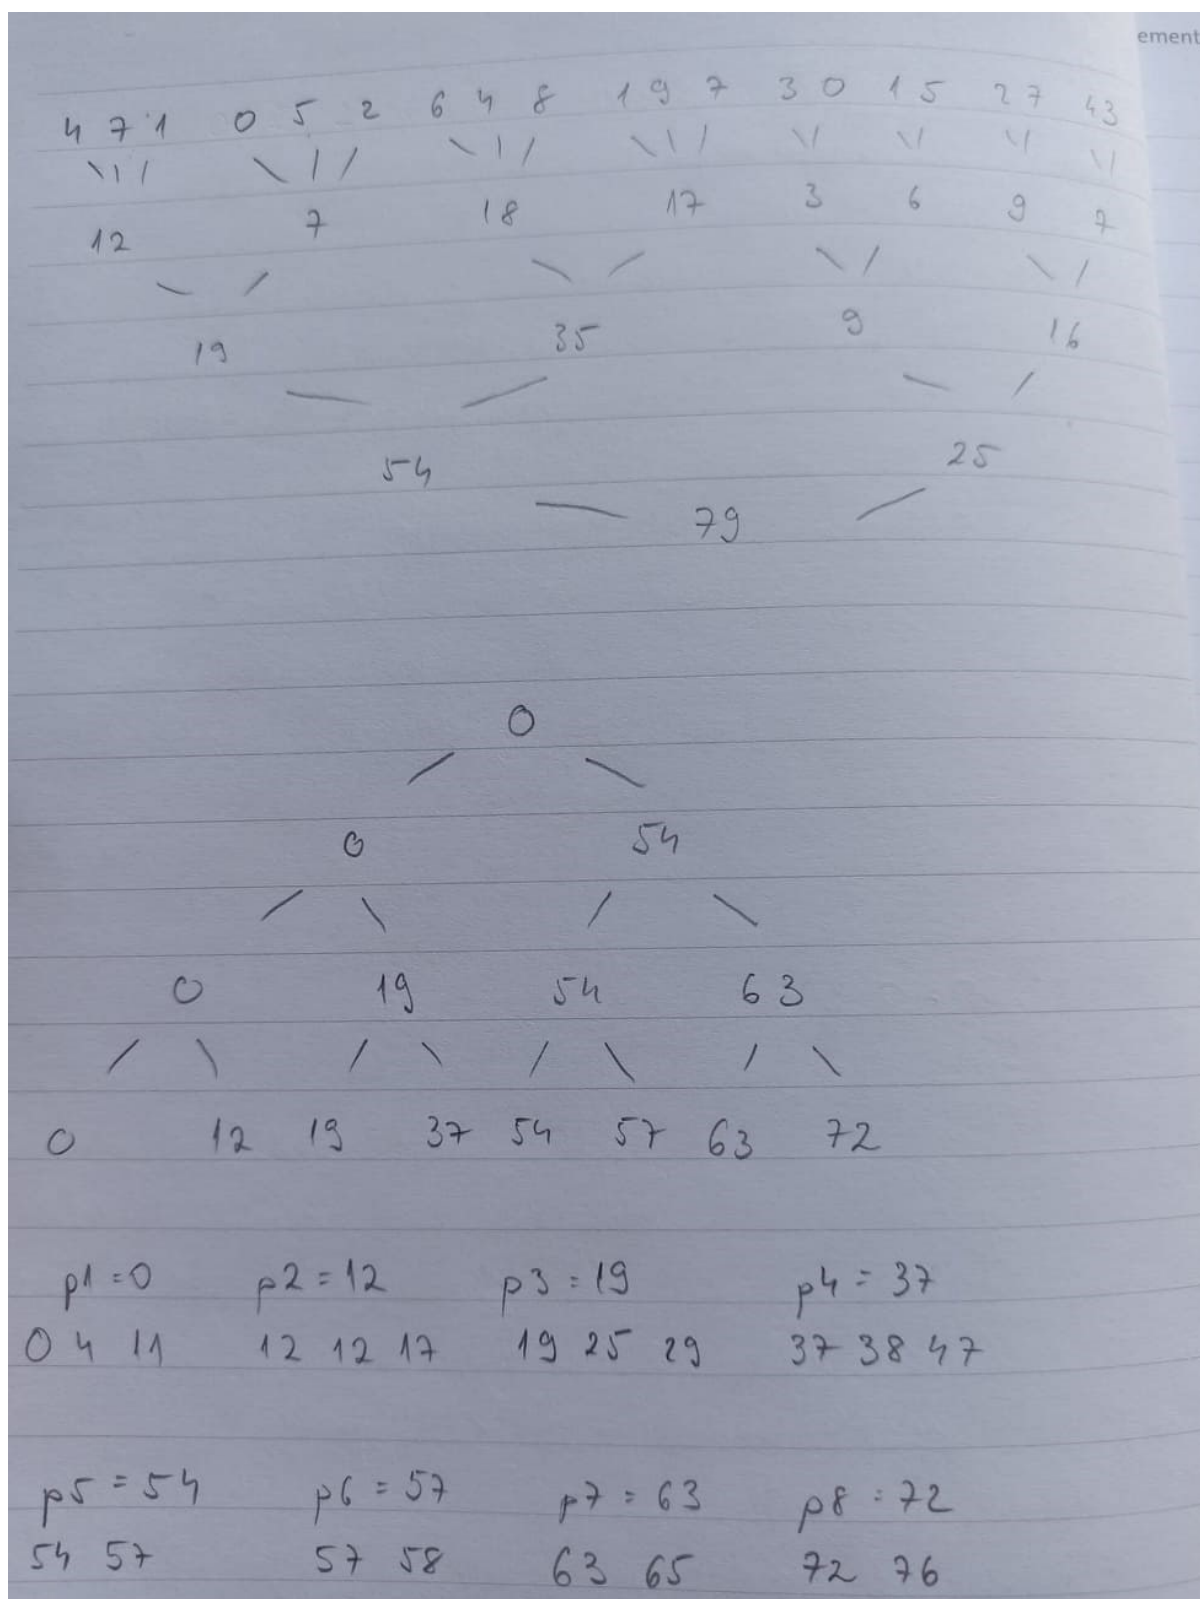 ement
4 7 1 0 5 2 6 4 8 1 9 7 3 0 1 5 2 7 4 3
12 7 18 17 3 6 9 7
19 35 9 16
54 25
79
0
0 54
0 19 54 63
0 12 19 37 54 57 63 72
p1=0 p2=12 p3=19 p4=37
0 4 11 12 12 17 19 25 29 37 38 47
p5=54 p6=57 p7=63 p8=72
54 57 57 58 63 65 72 76